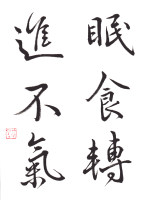 眠食轉
進不氣